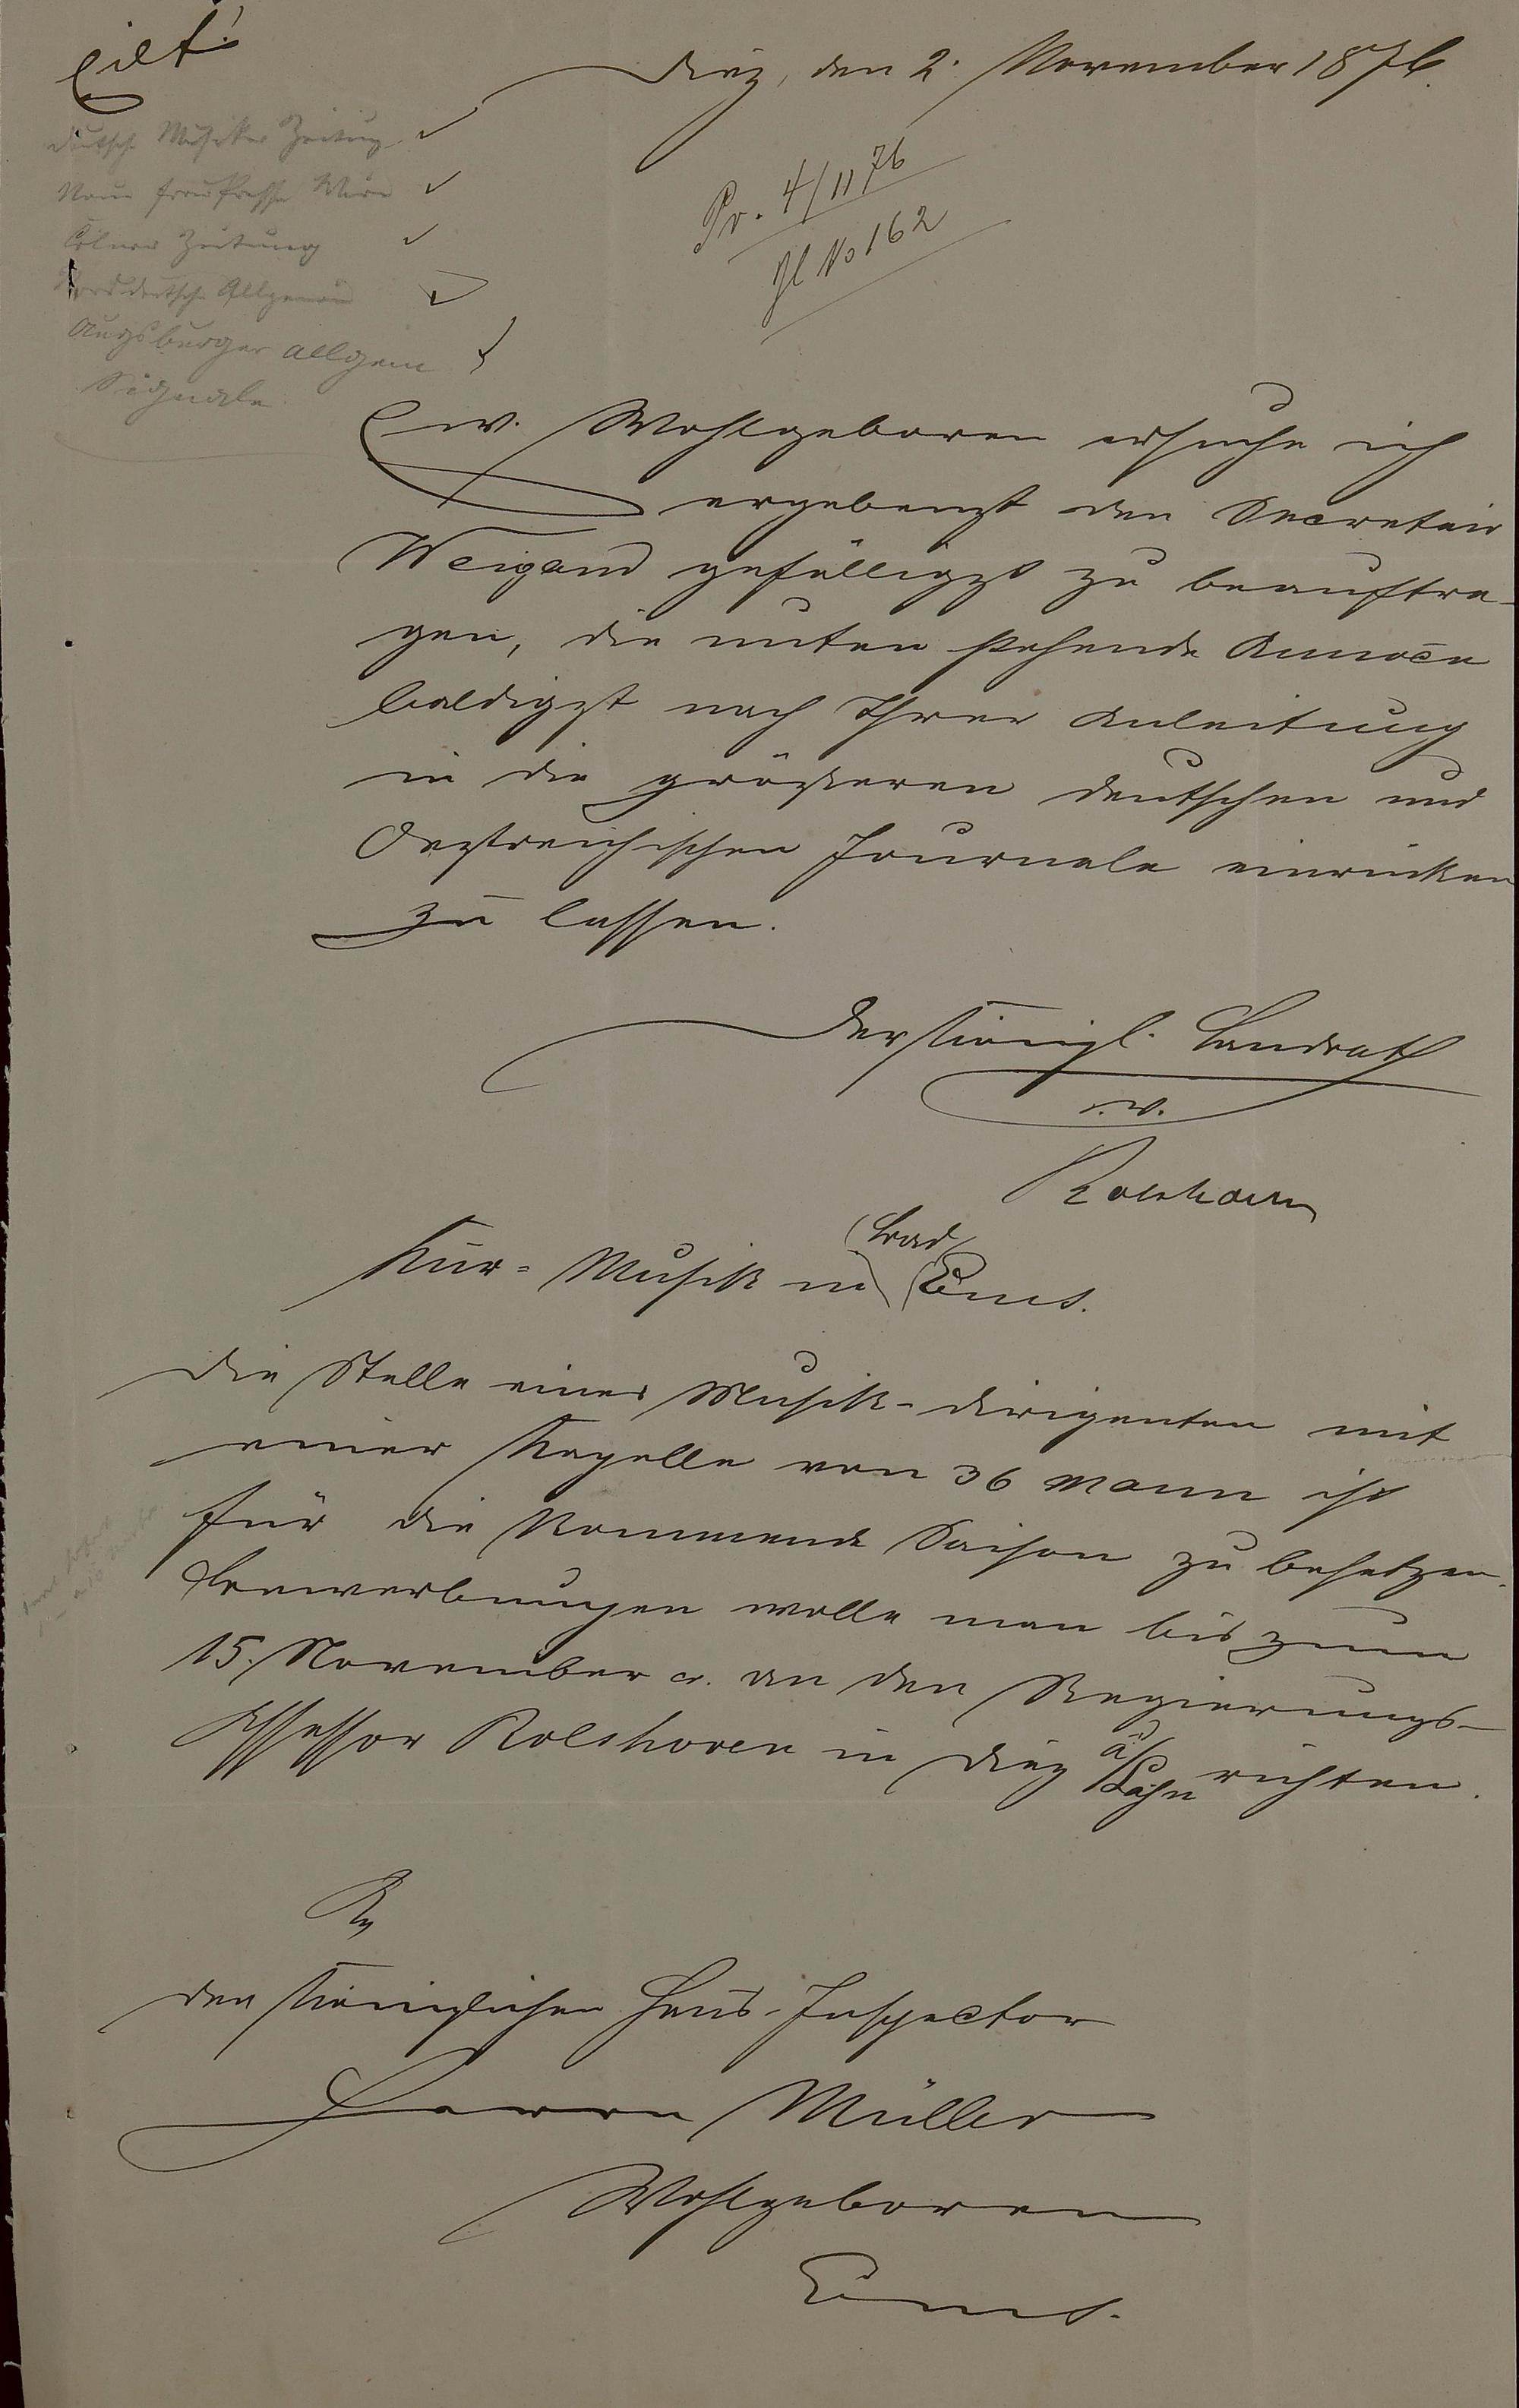 Eilt!
Diez, den 2. November 1876.
Deutsche Musiker Zeitung
Neue freie Presse Wien
Cölner Zeitung
Norddeutsche Allgemein
Augsburger Allgem
Signale
Pr. 4/11 76
Jl No 162
Ew. Wohlgeboren ersuche ich
ergebenst den Secretair
Weigand gefälligst zu beauftra-
gen, die unten stehende Annoce
baldigst nach Ihrer Anleitung
in die größeren deutschen und
Oestreichischen Journale einrücken
zu lassen.
Der Königl. Landrath
i. v.
Rolshoven
Kur-Musik in Bad Ems.
Die Stelle eines Musik-Dirigenten mit
einer Kapelle von 36 Mann ist
für die kommende Saison zu besetzen.
Bewerbungen wolle man bis zum
15. November cr. an den Regierungs-
Assessor Rolshoven in Diez a/d Lahn richten.
An
den Königlichen Haus-Inspector
Herrn Müller
Wohlgeboren
Ems.